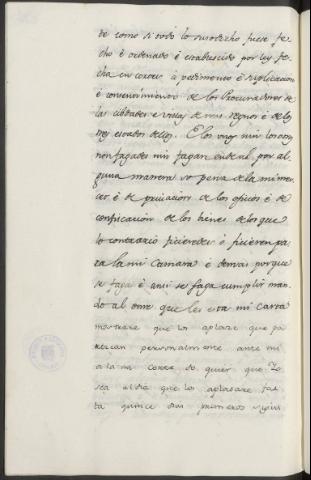 de como si todo lo susodicho fuese fe
cho é ordenado é establescido por ley fe
cha en cortes á pedimento é suplicacion
é consentimiento de los Procuradores de
las cibdades e villas de mis regnos é de los
tres estados dellos. E los unos nin los otros
non fagades nin fagan ende al, por al
guna manera so pena de la mi mer
ced é de privacion de los oficios é de
confiscacion de los bienes de los que
lo contrario ficieredes é ficieren pa
ra la mi Camara é demas porque
se faga é ansi se faga cumplir man
do al ome que les esta mi carta
mostrare que los aplaze que pa
rezcan personalmente ante mi
a la mi corte do quier que Yo
sea al dia que los aplazare fas
ta quince dias primeros siguien